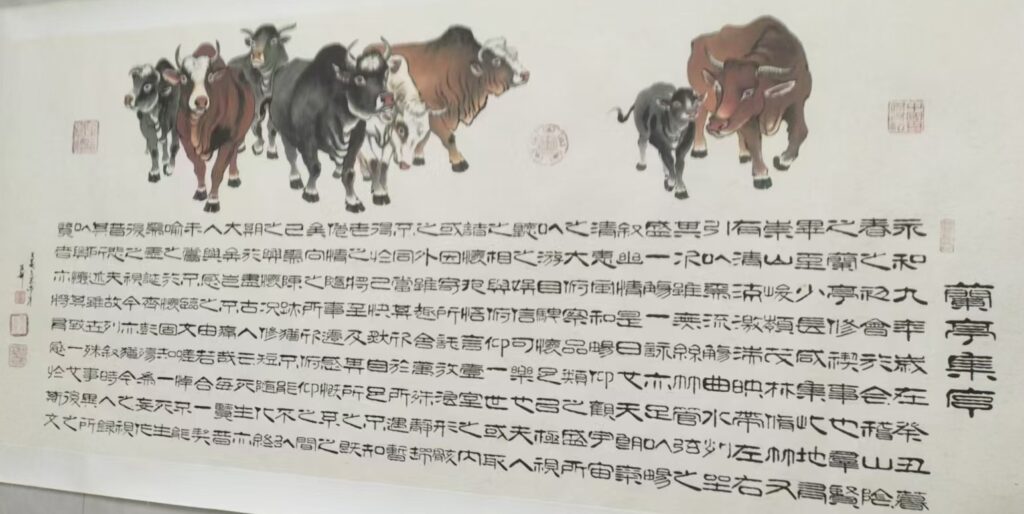 蘭亭集序
永和九年歲在癸丑暮
春之初會於會稽山陰
之蘭亭修禊事也羣賢
畢至少長咸集此地有
崇山峻領茂林脩竹又
有清流激湍映帶左右
引以為流觴曲水列坐
其次雖無絲竹管弦之
盛一觴一詠亦足以暢
敘幽情是日也天朗氣
清惠風和暢仰觀宇宙
之大俯察品類之盛所
以游目騁懷足以極視
聽之娛信可樂也夫人
之相與俯仰一世或取
諸懷抱悟言一室之內
或因寄所託放浪形骸
之外雖趣舍萬殊靜躁
不同當其欣於所遇暫
得於己快然自足不知
老之將至及其所之既
倦情隨事遷感慨係之
矣向之所欣俯仰之間
已為陳跡猶不能不以
之興懷況修短隨化終
期於盡古人云死生亦
大矣豈不痛哉每覽昔
人興感之由若合一契
未嘗不臨文嗟悼不能
喻之於懷固知一死生
為虛誕齊彭殤為妄作
後之視今亦猶今之視
昔悲夫故列敘時人錄
其所述雖世殊事異所
以興懷其致一也後之
覽者亦將有感於斯文